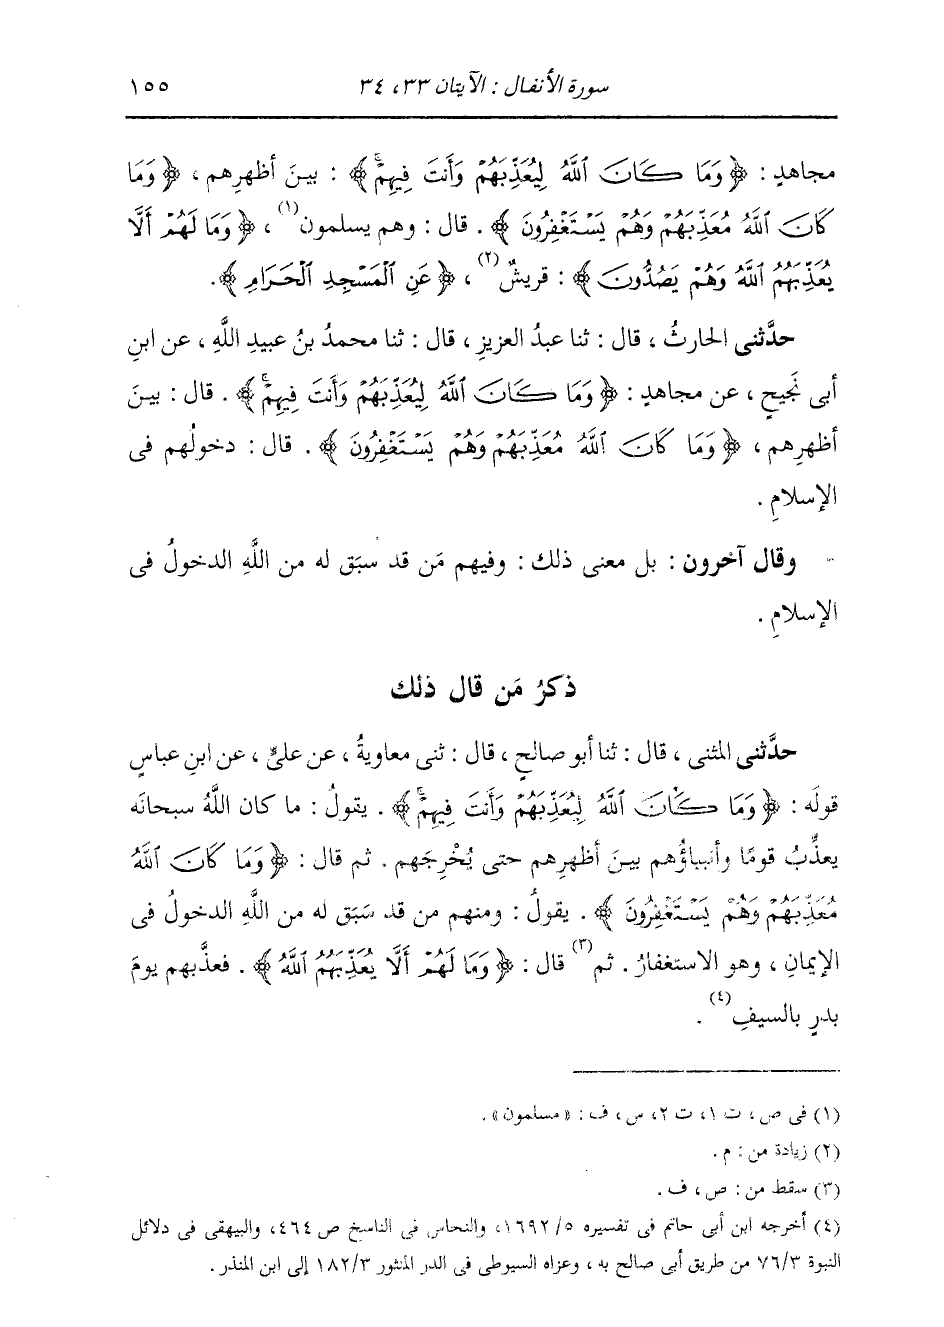 سورة الأنفال : الآيتان ٣٣، ٣٤ ١٥٥
مجاهدٍ : ﴿ وَمَا كَانَ اللَّهُ لِيُعَذِّبَهُمْ وَأَنتَ فِيهِمْ ﴾ : بينَ أظهرِهم ، ﴿ وَمَا
كَانَ اللَّهُ مُعَذِّبَهُمْ وَهُمْ يَسْتَغْفِرُونَ ﴾ . قال : وهم يسلمون(١) ، ﴿ وَمَا لَهُمْ أَلَّا
يُعَذِّبَهُمُ اللَّهُ وَهُمْ يَصُدُّونَ ﴾ : قريشٌ(٢) ، ﴿ عَنِ الْمَسْجِدِ الْحَرَامِ ﴾.
حدَّثنى الحارثُ ، قال : ثنا عبدُ العزيزِ ، قال : ثنا محمدُ بنُ عبيدِ اللَّهِ ، عن ابنِ
أبى نَجيحٍ ، عن مجاهدٍ : ﴿ وَمَا كَانَ اللَّهُ لِيُعَذِّبَهُمْ وَأَنتَ فِيهِمْ ﴾ . قال : بينَ
أظهرِهم ، ﴿ وَمَا كَانَ اللَّهُ مُعَذِّبَهُمْ وَهُمْ يَسْتَغْفِرُونَ ﴾ . قال : دخولُهم فى
الإسلامِ .
وقال آخرون : بل معنى ذلك : وفيهم مَن قد سبَق له من اللَّهِ الدخولُ فى
الإسلامِ .
ذكرُ مَن قال ذلك
حدَّثنى المثنى ، قال : ثنا أبو صالحٍ ، قال : ثنى معاويةُ ، عن علىٍّ ، عن ابنِ عباسٍ
قولَه : ﴿ وَمَا كَانَ اللَّهُ لِيُعَذِّبَهُمْ وَأَنتَ فِيهِمْ ﴾ . يقولُ : ما كان اللَّهُ سبحانَه
يعذِّبُ قومًا وأنبياؤُهم بينَ أظهرِهم حتى يُخْرِجَهم . ثم قال : ﴿ وَمَا كَانَ اللَّهُ
مُعَذِّبَهُمْ وَهُمْ يَسْتَغْفِرُونَ ﴾ . يقولُ : ومنهم من قد سَبَق له من اللَّهِ الدخولُ فى
الإيمانِ ، وهو الاستغفارُ . ثم(٣) قال : ﴿ وَمَا لَهُمْ أَلَّا يُعَذِّبَهُمُ اللَّهُ ﴾ . فعذَّبهم يومَ
بدرٍ بالسيفِ(٤) .
(١) فى ص ، ت ١، ت ٢، س ، ف : « مسلمون » .
(٢) زيادة من : م .
(٣) سقط من : ص ، ف .
(٤) أخرجه ابن أبى حاتم فى تفسيره ١٦٩٢/٥، والنحاس فى الناسخ ص ٤٦٤، والبيهقى فى دلائل
النبوة ٧٦/٣ من طريق أبى صالح به ، وعزاه السيوطى فى الدر المنثور ١٨٢/٣ إلى ابن المنذر .